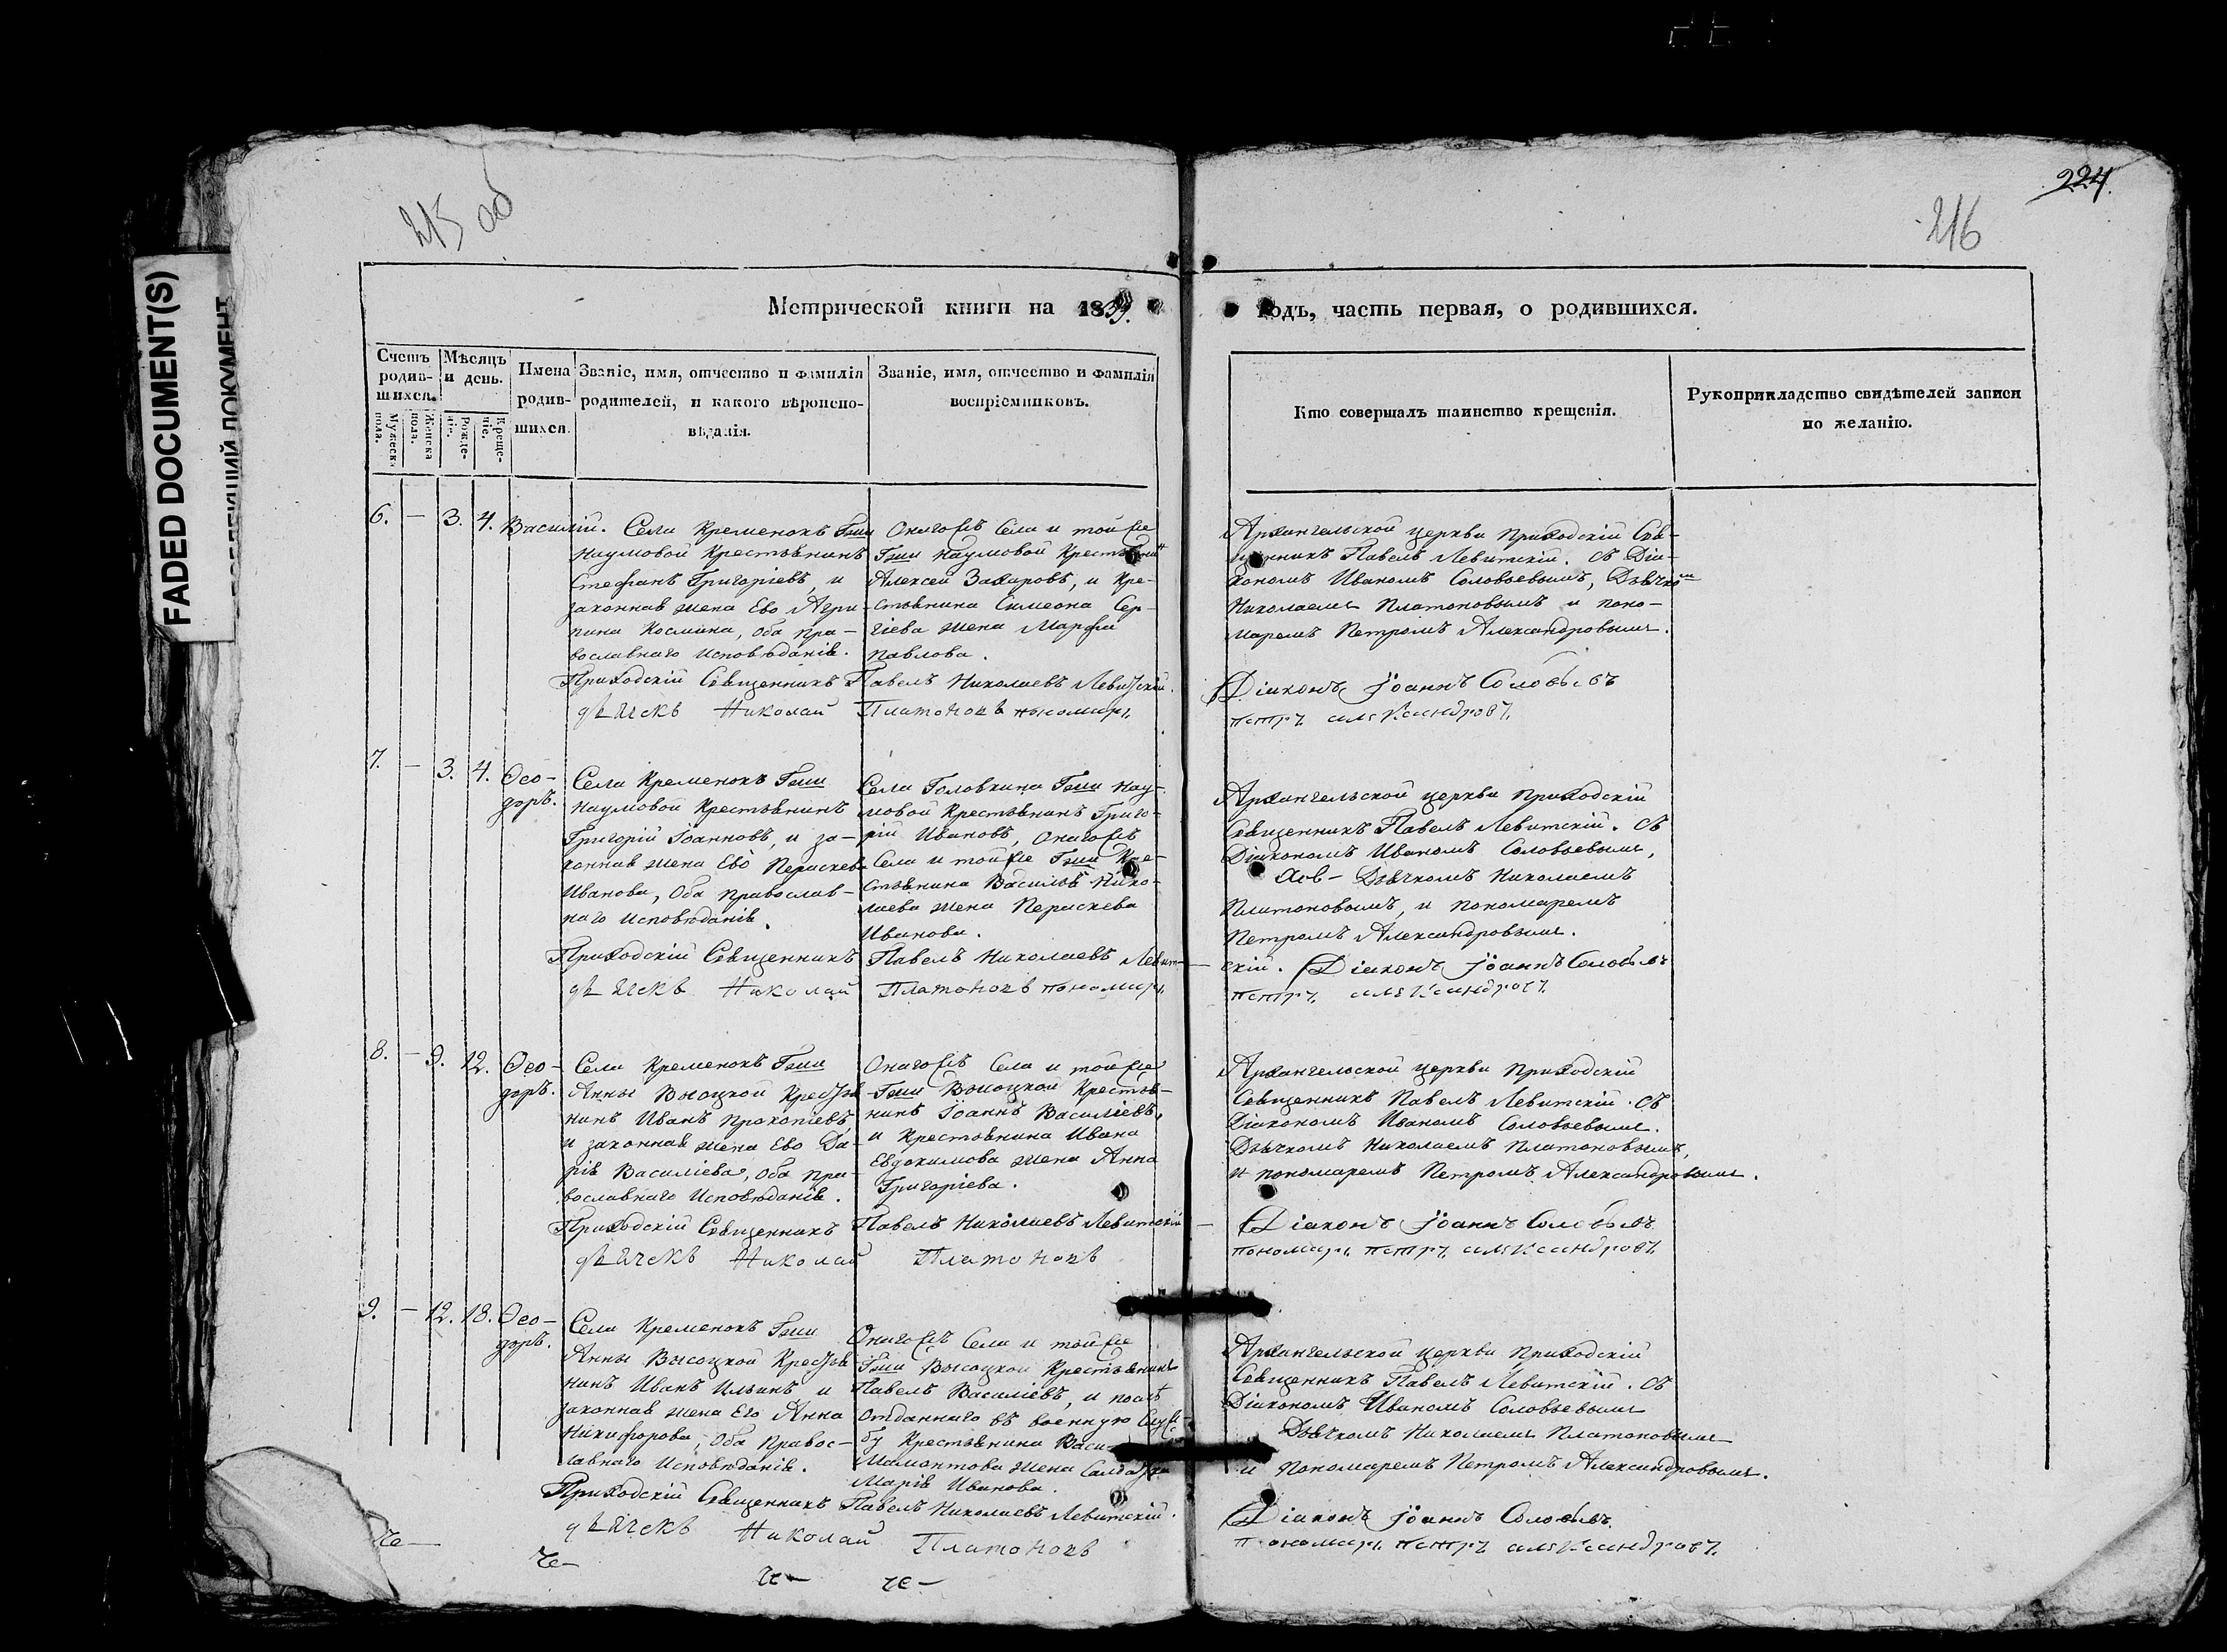 FADED DOCUMENT(S)
215 об
216
224.
Метрической книги на 1839. Годъ, часть первая, о родившихся.
Счетъ родив-шихся.
Мужеска пола.
Женска пола.
Мѣсяцъ и день.
Рожде-ніе.
Креще-ніе.
Имена родив-шихся.
Званіе, имя, отчество и фамилія родителей, и какого вѣроиспо-вѣданія.
Званіе, имя, отчество и фамилія воспріемниковъ.
Кто совершалъ таинство крещенія.
Рукоприкладство свидѣтелей записи по желанію.
6. — 3. 4. Василій.
Села Кременокъ Гжи
Наумовой Крестьянинъ
Стефанъ Григоріевъ, и
законная жена Ево Агри-
пина Космина, Оба пра-
вославнаго Исповѣданія.
Онагожъ Села и той же
Гжи Наумовой Крестьянинъ
Алексей Захаровъ, и Кре-
стьянина Симеона Сер-
гіева жена Марфа
Павлова.
Архангельской церкви приходскій Свя-
щенникъ Павелъ Левитскій. съ Діа-
кономъ Иваномъ Соловьевымъ, Дьячкомъ
Николаемъ Платоновымъ и поно-
маремъ Петромъ Александровымъ.
Приходскій Священникъ Павелъ Николаевъ Левитскій.
Діаконъ Іоаннъ Соловьевъ
дьячекъ Николай Платоновъ пономарь
петръ александровъ
7. — 3. 4. Ѳео-
доръ.
Села Кременокъ Гжи
Наумовой Крестьянинъ
Григорій Іоанновъ, и за-
конная жена Ево Пераскева
Иванова, Оба православ-
наго Исповѣданія.
Села Головкина Гжи Нау-
мовой Крестьянинъ Григо-
рій Ивановъ, Онагожъ
Села и той же Гжи Кре-
стьянина Василья Нико-
лаева жена Пераскева
Иванова.
Архангельской церкви приходскій
Священникъ Павелъ Левитскій. съ
Діакономъ Иваномъ Соловьевымъ,
Дьячкомъ Николаемъ
Платоновымъ, и пономаремъ
Петромъ Александровымъ.
Приходскій Священникъ Павелъ Николаевъ Левит-
скій. Діаконъ Іоаннъ Соловьевъ
дьячекъ Николай Платоновъ пономарь
петръ александровъ
8. — 9. 12. Ѳео-
доръ.
Села Кременокъ Гжи
Анны Высоцкой Крестья-
нинъ Иванъ Прокопіевъ,
и законная жена Ево Да-
рія Василіева, Оба пра-
вославнаго Исповѣданія.
Онагожъ Села и той же
Гжи Высоцкой Крестья-
нинъ Іоаннъ Василіевъ,
и Крестьянина Ивана
Евдокимова жена Анна
Григоріева.
Архангельской церкви приходскій
Священникъ Павелъ Левитскій. съ
Діакономъ Иваномъ Соловьевымъ.
Дьячкомъ Николаемъ Платоновымъ,
и пономаремъ Петромъ Александровымъ.
Приходскій Священникъ Павелъ Николаевъ Левитскій —
Діаконъ Іоаннъ Соловьевъ
дьячекъ Николай Платоновъ
пономарь петръ александровъ
9. — 12. 18. Ѳео-
доръ.
Села Кременокъ Гжи
Анны Высоцкой Крестья-
нинъ Иванъ Ильинъ, и
законная жена Его Анна
Никифорова, Оба правос-
лавнаго Исповѣданія.
Онагожъ Села и той же
Гжи Высоцкой Крестьянинъ
Павелъ Василіевъ, и послѣ
отданнаго въ военную служ-
бу Крестьянина Васи-
Мамонтова жена Салдатка
Марія Иванова.
Архангельской церкви приходскій
Священникъ Павелъ Левитскій. съ
Діакономъ Иваномъ Соловьевымъ
Дьячкомъ Николаемъ Платоновымъ
и Пономаремъ Петромъ Александровымъ.
Приходскій Священникъ Павелъ Николаевъ Левитскій.
Діаконъ Іоаннъ Соловьевъ.
дьячекъ Николай Платоновъ
Пономарь петръ александровъ